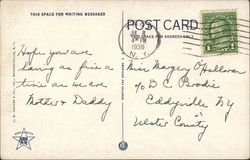 THIS SPACE FOR WRITING MESSAGES
POST CARD
THIS SPACE FOR ADDRESS ONLY
1939
N.Y.
Hope you are
having as fine a
time as we are
Mother & Daddy
Miss Margery O'Halloran
c/o D C Brodie
Eddyville NY
Ulster County
1 1